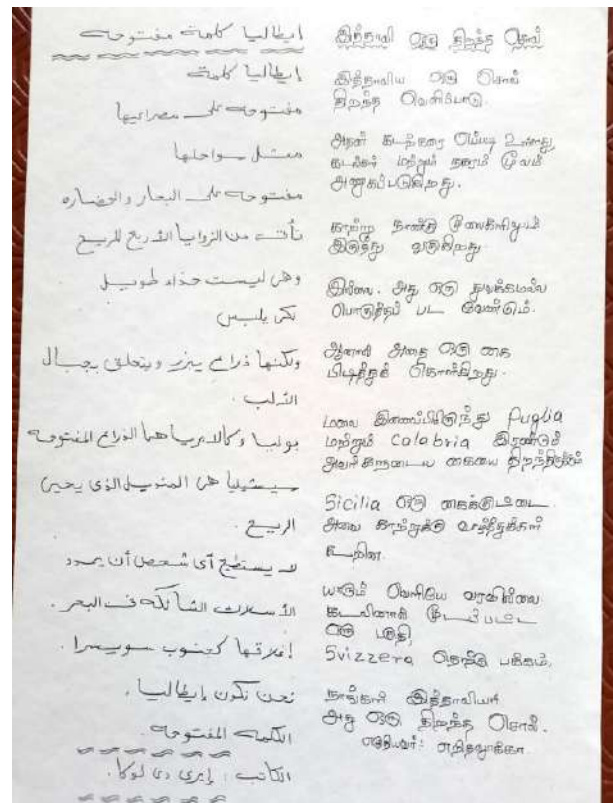 إيطاليا كلمة مفتوحة
إيطاليا كلمة
مفتوحة على مصراعيها
مثل سواحلها
مفتوحة على البحار والحضارة
تأتي من الزوايا الأربع للريح
وهي ليست حذاء طويل
لكى يلبس
ولكنها ذراع يبرز ويتعلق بجبال
الألب.
بوليا وكالابريا هما الذراع المفتوحة
سيشيليا هي المنديل الذى يحيى
الريح.
لا يستطيع أى شخص أن يمدد
الأسلاك الشائكة فى البحر.
إغلاقها كجنوب سويسرا.
نحن نكون إيطاليا.
الكلمة المفتوحة.
الكاتب: إيرى دى لوكا.
இத்தாலி ஒரு திறந்த சொல்
இத்தாலிய ஒரு சொல்
திறந்த வெளிப்பாடு.
அதன் கடற்கரை எப்படி உள்ளது,
கடல்கள் மற்றும் நகரம் மூலம்
அணுகப்படுகிறது.
காற்று நான்கு மூலைகளிலும்
இருந்து வருகிறது.
இல்லை. அது ஒரு துவக்கமல்ல
பொருத்தப் பட வேண்டும்.
ஆனால் அதை ஒரு கை
பிடித்துக் கொள்கிறது.
மலை இணைப்பிலிருந்து Puglia
மற்றும் Calabria இரண்டும்
அவர்களுடைய கையை திறந்திருக்கும்
Sicilia ஒரு கைக்குட்டை.
அவை காற்றுக்கு வாழ்த்துக்கள்
கூறின.
யாரும் வெளியே வரவில்லை
கடலினால் மூடப்பட்ட
ஒரு பகுதி,
Svizzera தெற்கு பக்கம்.
நாங்கள் இத்தாலியர்
அது ஒரு திறந்த சொல்.
எழுதியவர்: